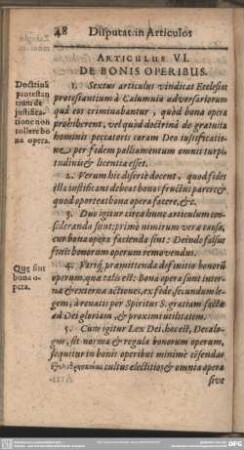 48 Disputat. in Articulos
ARTICULUS VI.
DE BONIS OPERIBUS.
Doctrinâ
protestan
tium de
justifica-
tione non
tollere bo
na opera.
1. Sextus articulus vindicat Ecclesias
protestantium à Calumnia adversariorum
quâ eos criminabantur, quòd bona opera
prohiberent, vel quòd doctrinâ de gratuita
hominis peccatoris coram Deo justificatio-
ne per fidem palliamentum omnis turpi-
tudinis & licentia esset.
2. Verum hîc diserte docent, quod fides
illa justificans debeat bonos fructus parere &
quòd oporteat bona opera facere, &c.
3. Duo igitur circa hunc articulum con-
sideranda sunt: primò nimirum vera causa,
cur bona opera facienda sint: Deinde falsus
finis bonorum operum removendus.
Quæ sint
bona o-
pera.
4. præmittenda definitio bonorũ
operum, quæ talis est: bona opera sunt inter-
na & externa actiones, ex fide, secundum le-
gem, à renatis per Spiritus S. gratiam factæ
ad Dei gloriam, & proximi utilitatem.
5. Cum igitur Lex Dei, hoc est, Decalo-
gus, sit norma & regula bonorum operum,
sequitur in bonis operibus minimè
cultus electitios, & omnia opera
sive